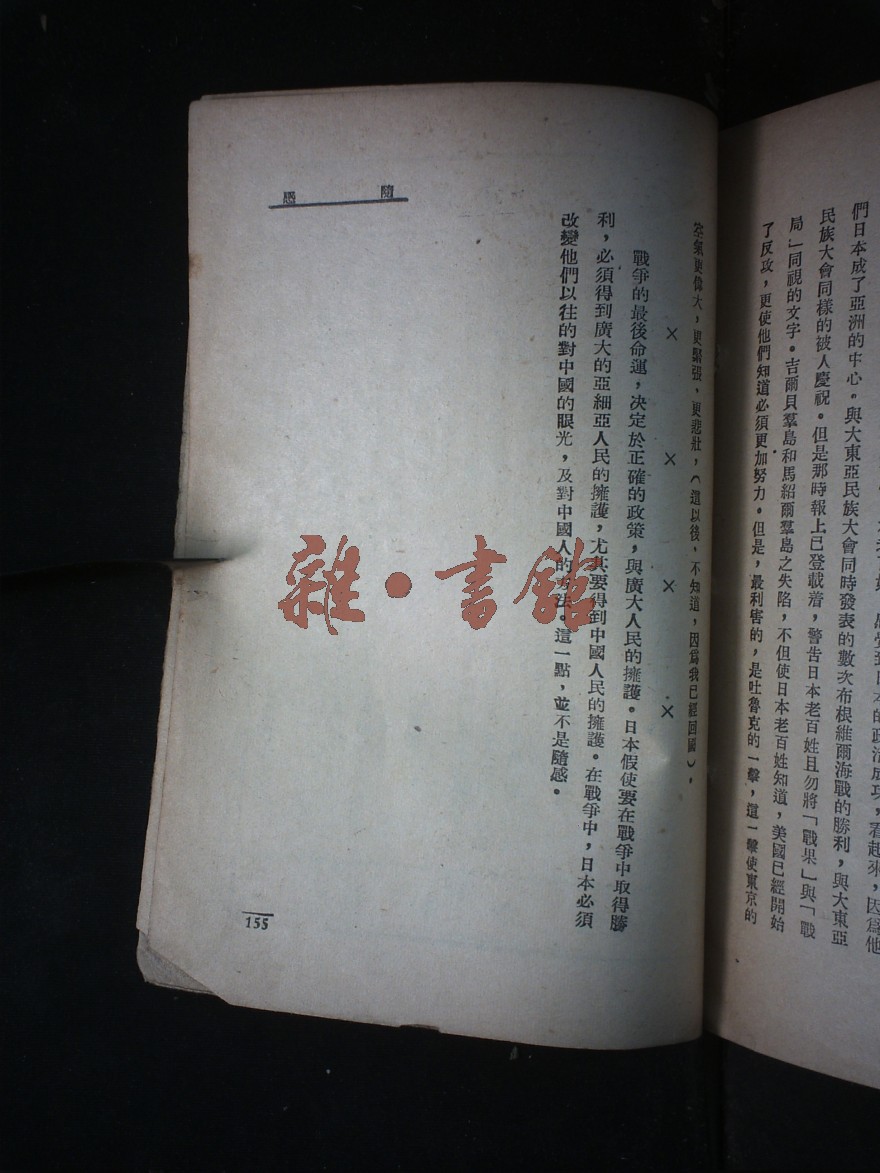 們日本成了亞洲的中心。與大東亞民族大會同時發表的數次布根維爾海戰的勝利,與大東亞
民族大會同樣的被人慶祝。但是那時報上已登載着,警告日本老百姓且勿將「戰果」與「戰
局」同視的文字。吉爾貝羣島和馬紹爾羣島之失陷,不但使日本老百姓知道,美國已經開始
了反攻,更使他們知道必須更加努力。但是,最利害的,是吐魯克的一擊,這一擊使東京的
空氣更偉大,更緊張、更悲壯,(這以後、不知道,因爲我已經回國),
× × × ×
戰爭的最後命運,决定於正確的政策,與廣大人民的擁護。日本假使要在戰爭中取得勝
利,必須得到廣大的亞細亞人民的擁護,尤其要得到中國人民的擁護。在戰爭中,日本必須
改變他們以往的對中國的眼光,及對中國人的方法。這一點,並不是隨感。
隨感
155
雜·書館